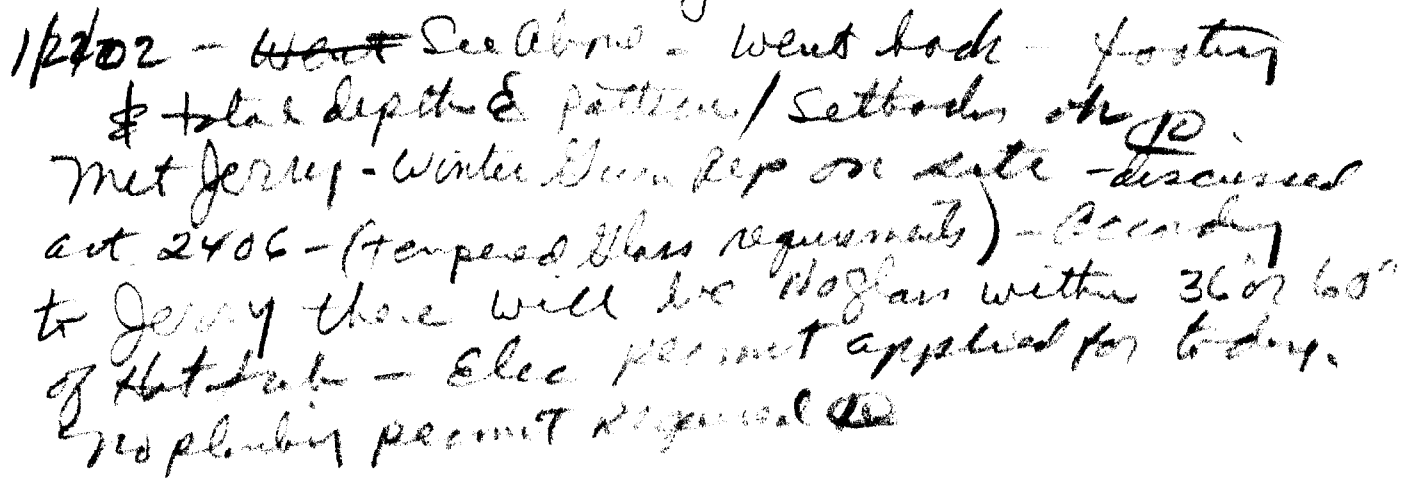 1/22/02 - Went See Above - Went back - footing
& total depth & pattern / Setbacks ok
Met Jerry - Winter Green Rep on site - discussed
art 2406 - (tempered Glass requirements) - According
to Jerry there will be No glass within 36" or 60"
of Hot tub - Elec permit applied for today.
No plumbing permit Required